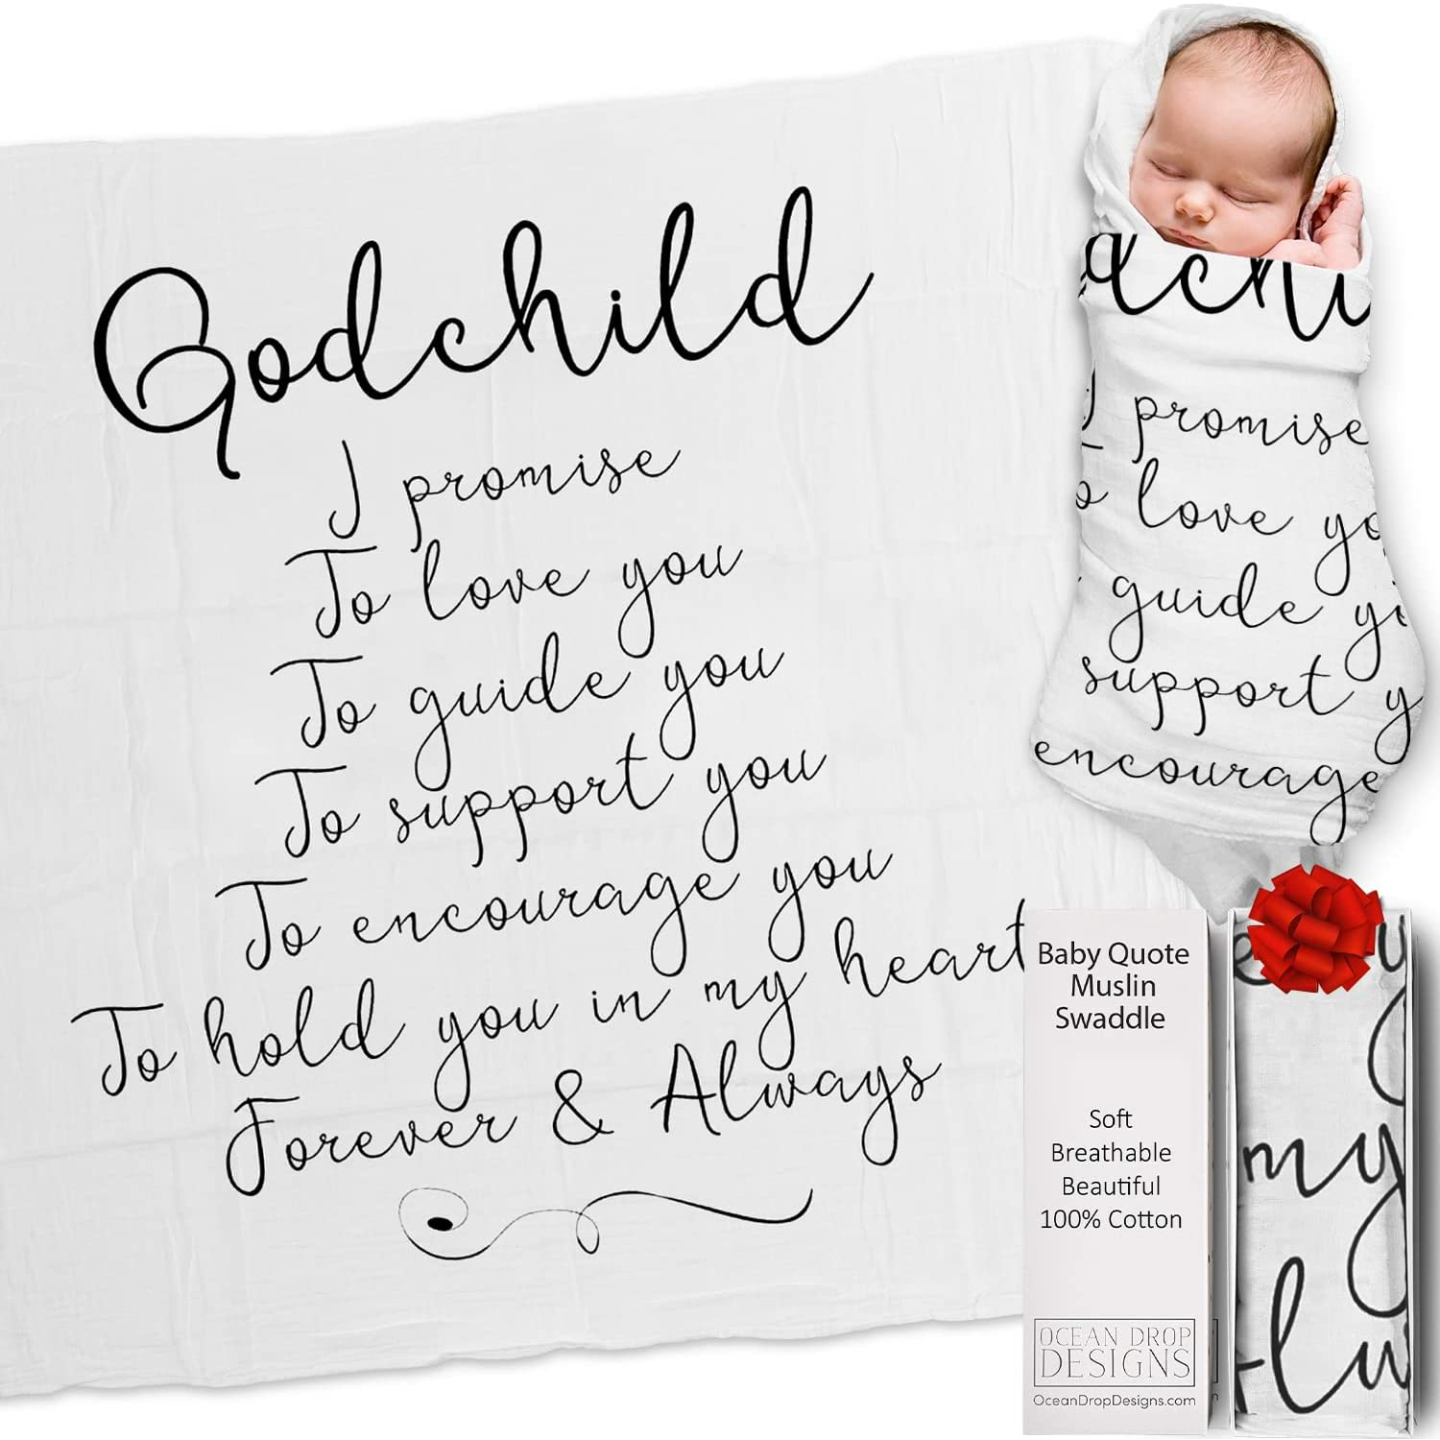 Godchild
I promise
To love you
To guide you
To support you
To encourage you
To hold you in my heart
Forever & Always
promise
love yo
guide y
support y
encourage
Baby Quote
Muslin
Swaddle
Soft
Breathable
Beautiful
100% Cotton
OCEAN DROP
DESIGNS
OceanDropDesigns.com
my